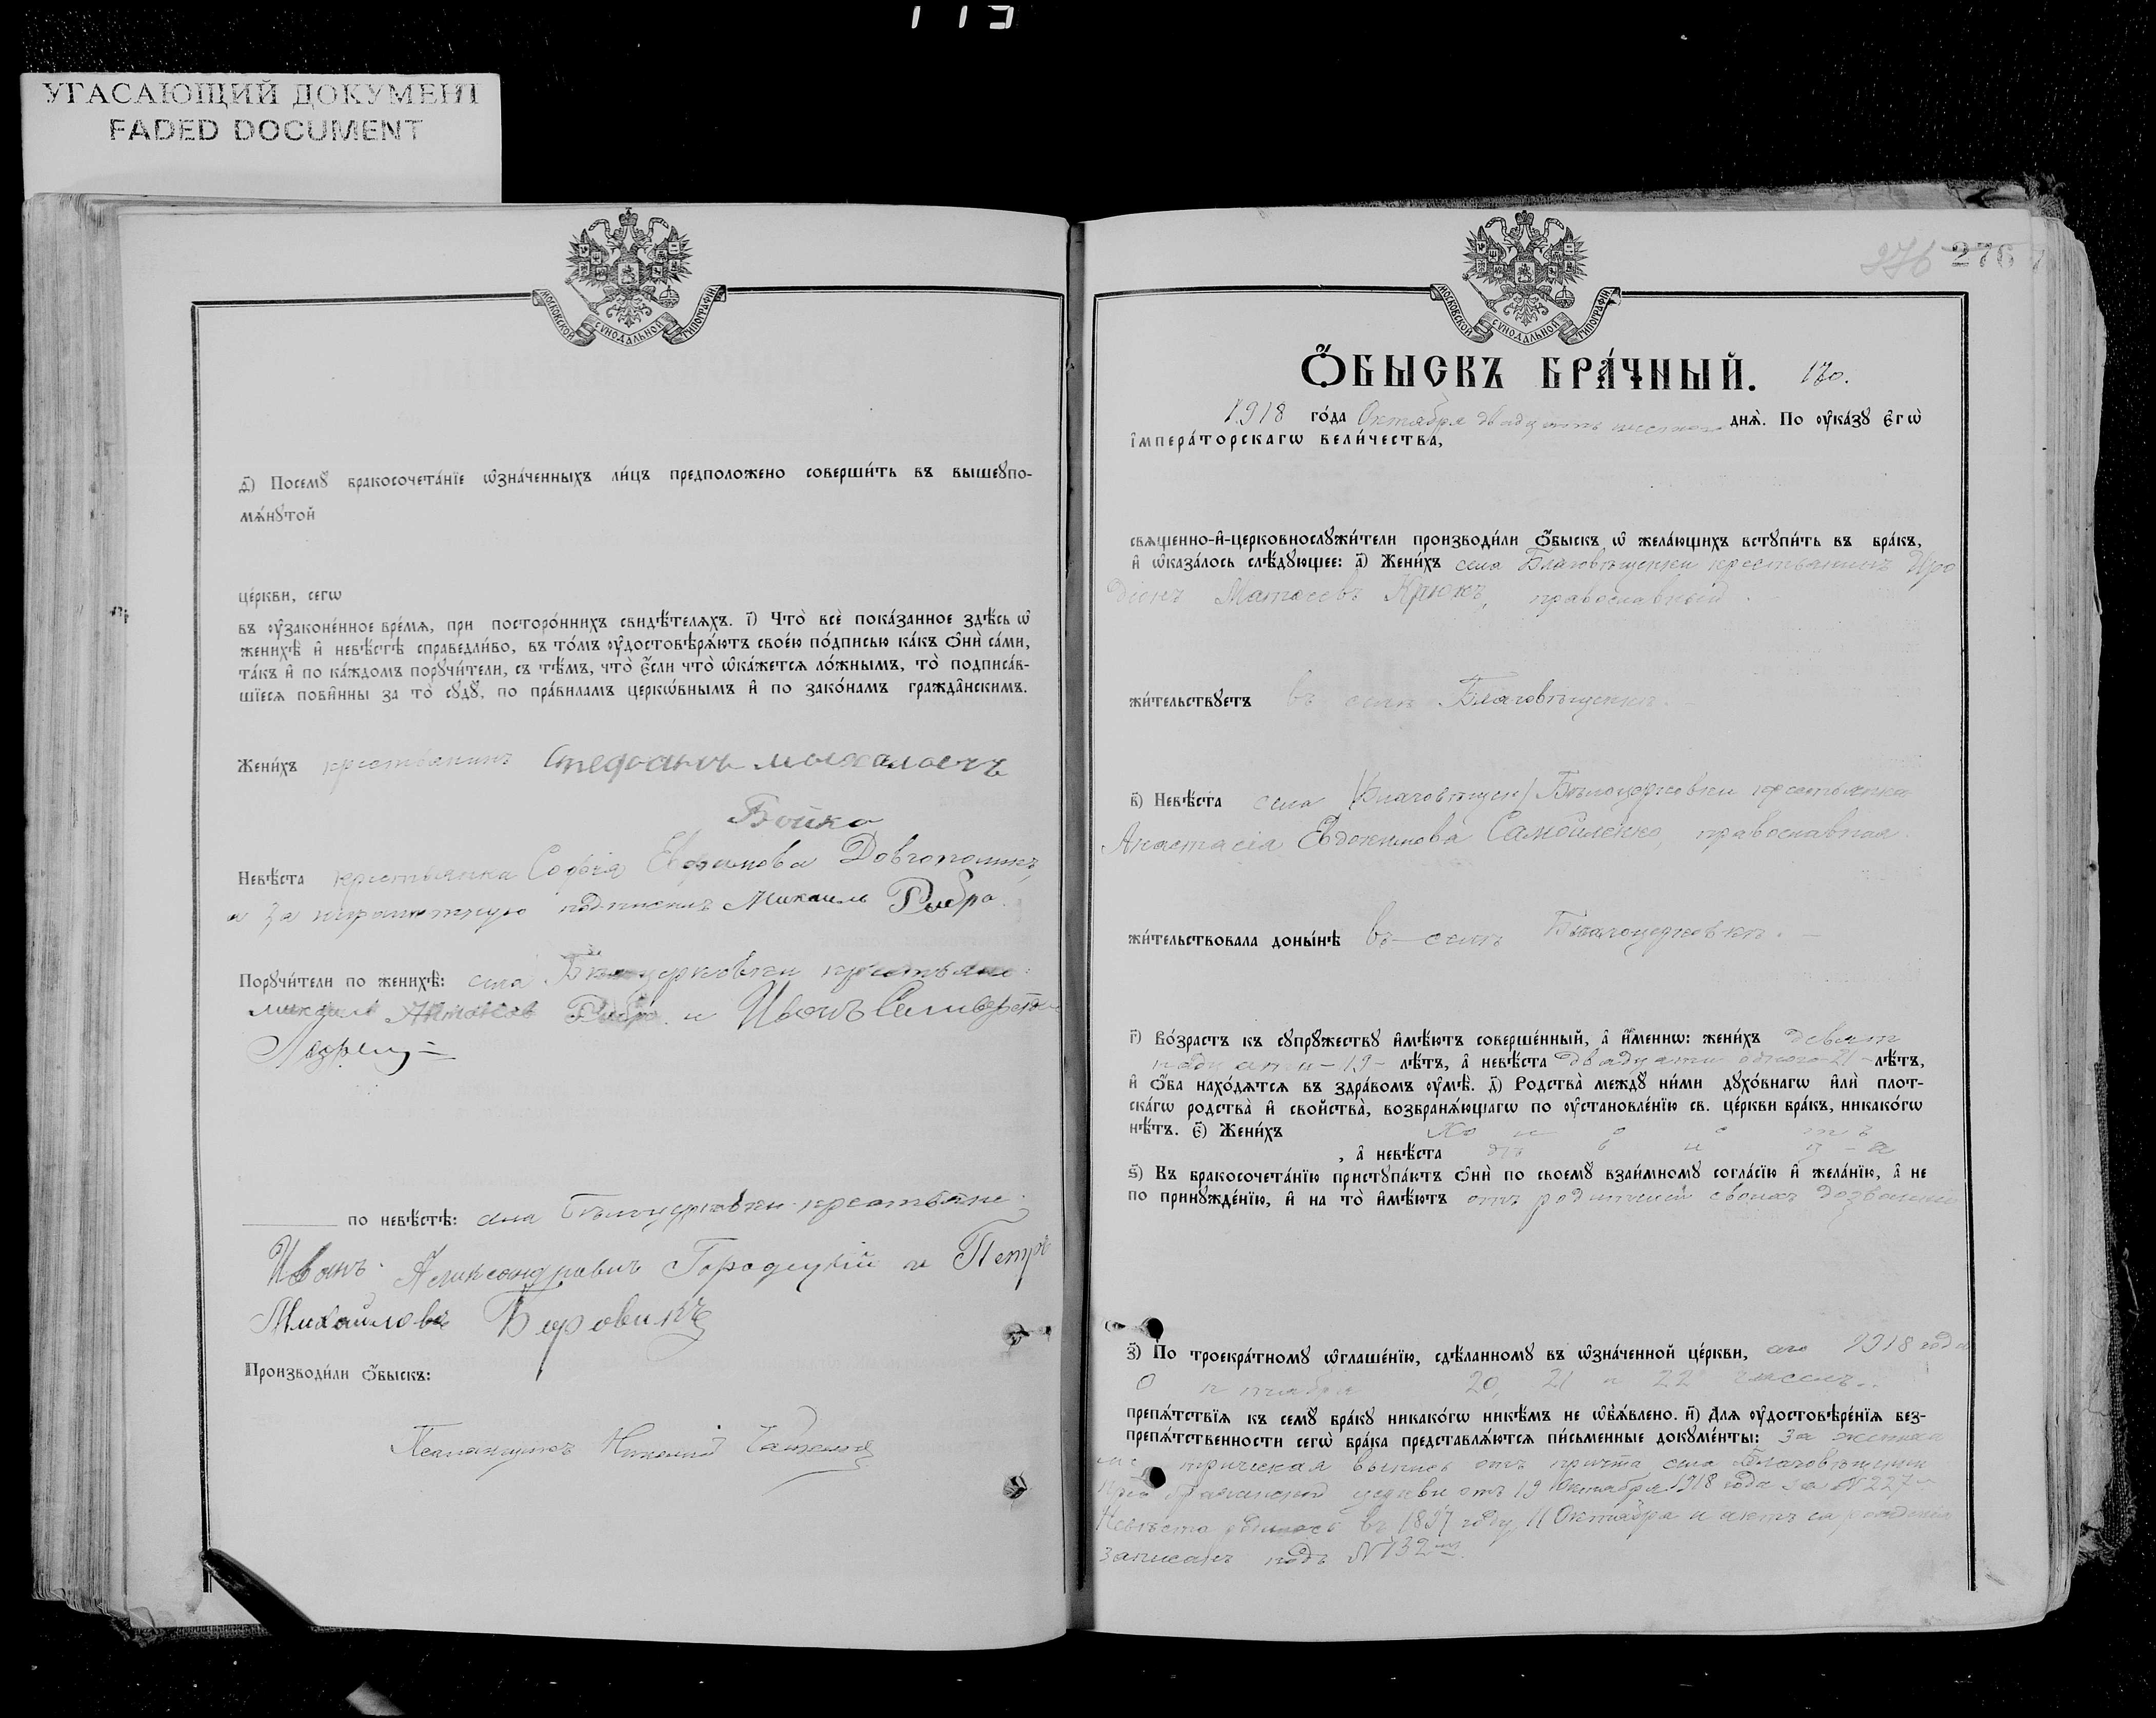 113
УГАСАЮЩИЙ ДОКУМЕНТ
FADED DOCUMENT
МОСКОВСКОЙ СѴНОДАЛЬНОЙ ТИПОГРАФІИ
д҃і) Посемꙋ̀ бракосочета́нїе ѡ҆зна́ченныхъ ли́цъ предположено соверши́ть въ вышеꙋпо-
мѧ́нꙋтой
це́ркви, сегѡ
въ ᲂу҆законе́нное вре́мѧ, при посторо́ннихъ свидѣ́телѧхъ. і҃) Что̀ всѐ пока́занное здѣ́сь ѡ
женихѣ̀ и҆ невѣ́стѣ справедли́во, въ то́мъ ᲂу҆достовѣрѧ́ютъ свое́ю по́дписью ка́къ ѻ҆нѝ са́ми,
та́къ и҆ по ка́ждомъ порꙋчи́тели, съ тѣ́мъ, что̀ є҆́сли что̀ ѡ҆ка́жетсѧ ло́жнымъ, то̀ подписа́в-
шїесѧ пови́нны за то̀ сꙋдꙋ̀, по пра́виламъ церко́внымъ и҆ по зако́намъ гражда̂нскимъ.
Жени́хъ крестьянинъ Стефанъ
Бойко
Невѣ́ста крестьянка Софія Довгополикъ,
а за неграмотную подписалъ Михаилъ Рибро.
Порꙋчи́тели по женихѣ̀: села Бѣлоцерковки крестьяне:
Рибро и Иванъ
по невѣ́стѣ: села Бѣлоцерковки крестьяне:
Иванъ Александровъ Городецкій и Петръ
Михаиловъ Боровикъ
Производи́ли ѻ҆́быскъ:
Псаломщикъ Николай
276 276
МОСКОВСКОЙ СѴНОДАЛЬНОЙ ТИПОГРАФІИ
Ѻ҆́БЫСКЪ БРА́ЧНЫЙ. 170.
1918 го́да Октября двадцать шестого днѧ̀. По ᲂу҆ка́зꙋ Є҆гѡ̀
І҆мпера́торскагѡ вели́чества,
свѧщенно-и҆-церковнослꙋжи́тели производи́ли ѻ҆́быскъ ѡ҆ жела́ющихъ встꙋпи́ть въ бра́къ,
и҆ ѡ҆каза́лось слѣ́дꙋющее: а҃) Жени́хъ села Благовѣщенки крестьянинъ Иро
діонъ Матѳеевъ Крюкъ, православный.
жи́тельствꙋетъ въ селѣ Благовѣщенкѣ.
в҃) Невѣ́ста села /Благовѣщен/ Бѣлоцерковки крестьянка
Анастасія Евдокимова Самойленко, православная.
жи́тельствовала доны́нѣ въ селѣ Бѣлоцерковкѣ.
г҃) Во́зрастъ къ сꙋпрꙋжествꙋ и҆мѣ́ютъ соверше́нный, а҆ и҆́менно: жени́хъ девят
надцати - 19 - лѣ́тъ, а҆ невѣ́ста двадцати одного - 21 - лѣ́тъ,
и҆ ѻ҆́ба нахо́дѧтсѧ въ здра́вомъ ᲂу҆мѣ̀. д҃) Родства̀ междꙋ̀ ни́ми дꙋхо́внагѡ и҆лѝ плот-
ска́гѡ родства̀ и҆ свойства̀, возбранѧ́ющагѡ по ᲂу҆становле́нїю св. це́ркви бра́къ, никако́гѡ
нѣ́тъ. є҃) Жени́хъ холостъ
, а҆ невѣ́ста дѣвица
ѕ҃) Въ бракосочета́нїю пристꙋпа́ютъ ѻ҆нѝ по своемꙋ̀ взаи́мномꙋ согла́сїю и҆ жела́нїю, а҆ не
по принꙋжде́нїю, и҆ на то̀ и҆мѣ́ютъ отъ родителей своихъ дозволеніе
з҃) По троекра́тномꙋ ѡ҆глаше́нїю, сдѣ́ланномꙋ въ ѡ҆зна́ченной це́ркви, сего 1918 года
Октября 20, 21 и 22 чиселъ.
препѧ́тствїѧ къ семꙋ̀ бра́кꙋ никако́гѡ никѣ́мъ не ѡ҆б̾ѧ́влено. и҃) Длѧ ᲂу҆достовѣре́нїѧ без-
препѧ́тственности сегѡ̀ бра́ка представлѧ́ютсѧ пи́сьменные докꙋме́нты: За жениха
метрическая выпись отъ причта села Благовѣщенки
церкви отъ 19 Октября 1918 года за №227
Невѣста родилась въ 1897 году, 11 Октября и актъ о рожденіи
записанъ подъ №132